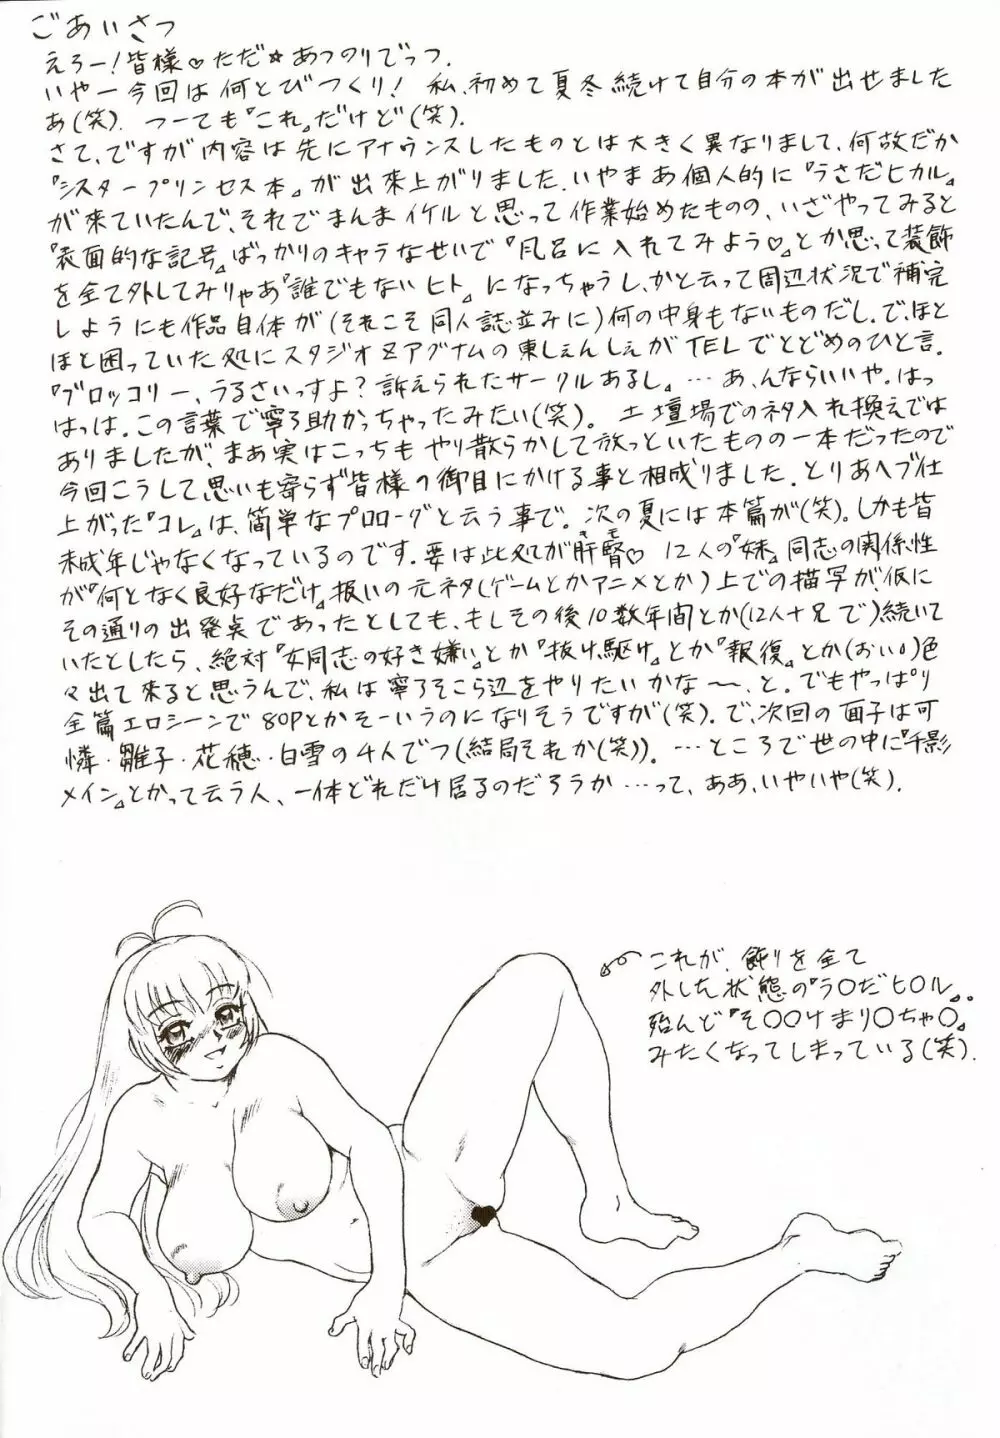 ごあいさつ
えろー!皆様♡ただ☆あつのりでっつ.
いやー今回は何とびつくり! 私、初めて夏冬続けて自分の本が出せました
あ(笑). つーても『これ』だけど(笑).
さて、ですが内容は先にアナウンスしたものとは大きく異なりまして、何故だか
『シスタープリンセス本』が出来上がりました. いやまあ個人的に『うさだヒカル』
が来ていたんで、それでまんまイケルと思って作業始めたものの、いざやってみると
『表面的な記号』ばっかりのキャラなせいで『風呂に入れてみよう♡』とか思って装飾
を全て外してみりゃあ『誰でもないヒト』になっちゃうし、かと云って周辺状況で補完
しようにも作品自体が(それこそ同人誌並みに)何の中身もないものだし. で、ほと
ほと困っていた処にスタジオZアグナムの東しぇんしぇがTELでとどめのひと言.
『ブロッコリー、うるさいっすよ?訴えられたサークルあるし』…あ、んならいいや. はっ
はっは. この言葉で寧ろ助かっちゃったみたい(笑). 土壇場でのネタ入れ換えでは
ありましたが、まあ実はこっちもやり散らかして放っといたものの一本だったので
今回こうして思いも寄らず皆様の御目にかける事と相成りました. とりあへブ仕
上がった『コレ』は、簡単なプロローグと云う事で. 次の夏には本篇が(笑). しかも皆
未成年じゃなくなっているのです. 要は此処が肝腎♡ 12人の『妹』同志の関係性
が『何となく良好なだけ』扱いの元ネタ(ゲームとかアニメとか)上での描写が、仮に
その通りの出発点であったとしても、もしその後10数年間とか(12人+兄で)続いて
いたとしたら、絶対『女同志の好き嫌い』とか『抜け駆け』とか『報復』とか(おい)色
々出て来ると思うんで、私は寧ろそこら辺をやりたいかな〜、と. でもやっぱり
全篇エロシーンで80Pとかそーいうのになりそうですが(笑). で、次回の面子は可
憐・雛子・花穂・白雪の4人でつ(結局それか(笑)). …ところで世の中に『千影
メイン』とかって云う人、一体どれだけ居るのだろうか…って、ああ、いやいや(笑).
これが、飾りを全て
外した状態の『う○だヒ○ル』.
殆んど『そ○○けまり○ちゃ○』
みたくなってしまっている(笑).